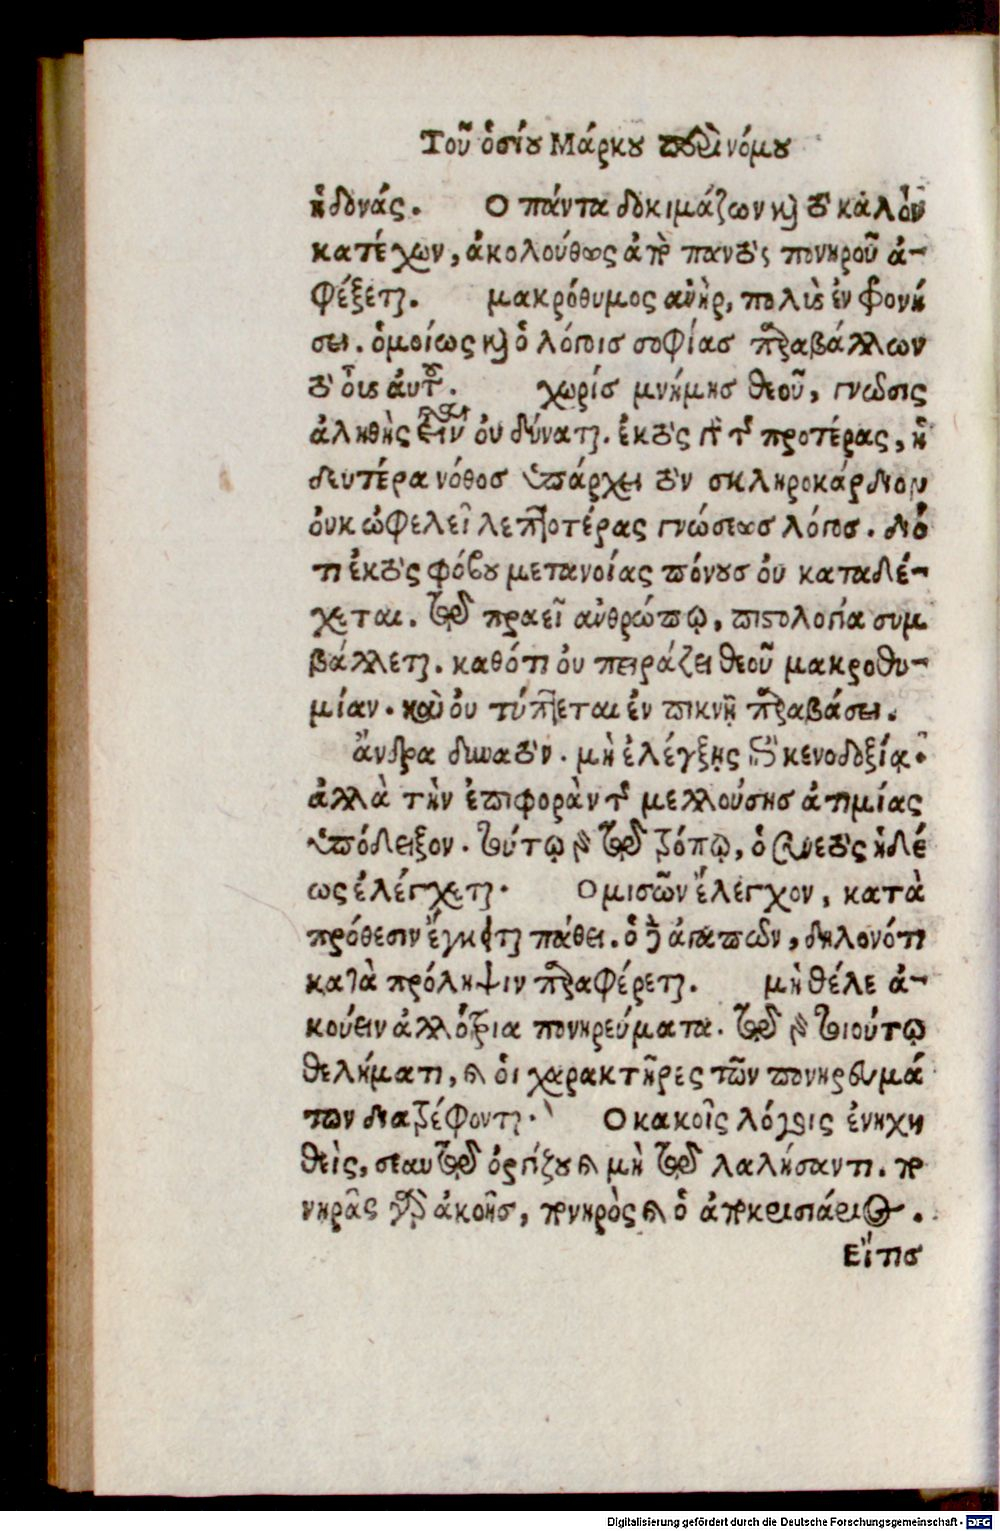 Τοῦ ὁσίου Μάρκου περὶ νόμου
ἡδονάς. Ο πάντα δοκιμάζων καὶ τὸ καλὸν
κατέχων, ἀκολούθως ἀπὸ παντὸς πονηροῦ ἀ-
φέξεται. μακρόθυμος ἀνὴρ, πολὺς ἐν φρονή
σει. ὁμοίως καὶ ὁ λόγοις σοφίας παραβάλλων
τὸ οὖς αὐτοῦ. χωρίς μνήμης θεοῦ, γνῶσις
ἀληθὴς εἶναι οὐ δύναται. ἐκτὸς γὰρ τῆς προτέρας, ἡ
δευτέρα νόθος ὑπάρχει τὸν σκληροκάρδιον
ὀυκ ὠφελεῖ λεπτοτέρας γνώσεως λόγος. διό
τι ἐκτὸς φόβου μετανοίας πόνους οὐ καταδέ-
χεται. τῷ πραεῖ ἀνθρώπῳ, πιστολογία συμ
βάλλεται. καθότι οὐ πειράζει θεοῦ μακροθυ-
μίαν. καὶ οὐ τύπτεται ἐν πικνῇ παραβάσει.
ἄνδρα δυνατὸν. μὴ ἐλέγξῃς ἐπὶ κενοδοξίᾳ.
ἀλλὰ τὴν ἐπιφορὰν τῆς μελλούσης ἀτιμίας
ὑπόδειξον. τούτῳ γὰρ τῷ τρόπῳ, ὁ συνετὸς ἡδέ
ως ἐλέγχεται. Ο μισῶν ἔλεγχον, κατὰ
πρόθεσιν ἔγκειται πάθει. ὁ δὲ ἀγαπῶν, δηλονότι
κατὰ πρόληψιν παραφέρεται. μὴ θέλε ἀ-
κούειν ἀλλότρια πονηρεύματα. τῷ γὰρ τοιούτῳ
θελήματι, καὶ ὁι χαρακτῆρες τῶν πονηρευμά
των διαγράφονται. Ο κακοῖς λόγοις ἐνηχη
θεὶς, σεαυτῷ ὀργίζου καὶ μὴ τῷ λαλήσαντι. πο
νηρᾶς γὰρ ἀκοῆς, πονηρὸς καὶ ὁ ἀποκρισιάριος.
Εἴ τις
Digitalisierung gefördert durch die Deutsche Forschungsgemeinschaft - DFG